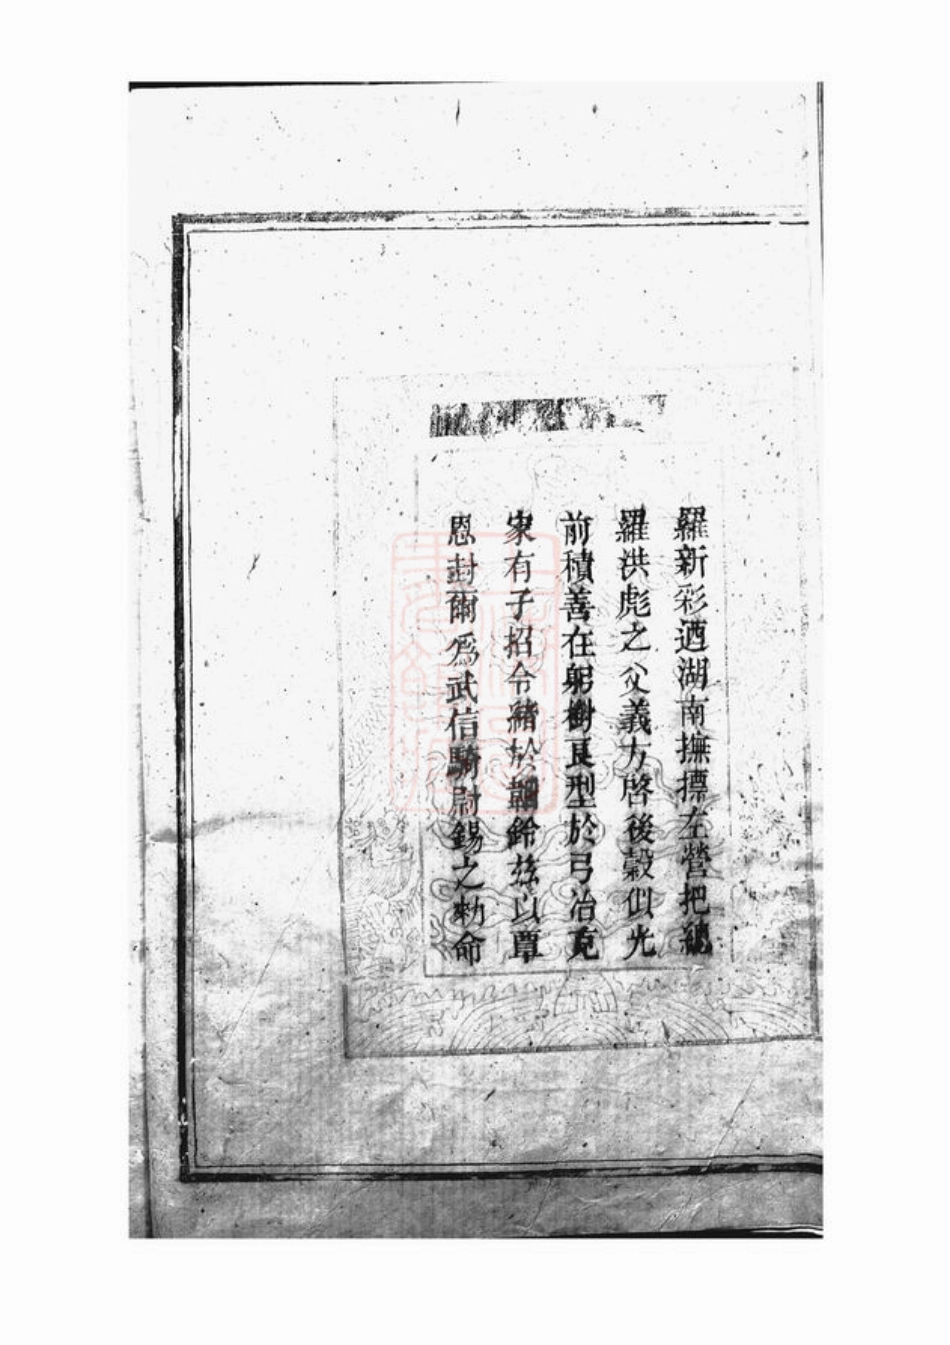 羅新彩迺湖南撫摽左營把總
羅洪彪之父義方啓後穀似光
前積善在躬樹良型於弓冶克
家有子招令緒於韜鈴茲以覃
恩封爾爲武信騎尉錫之勑命